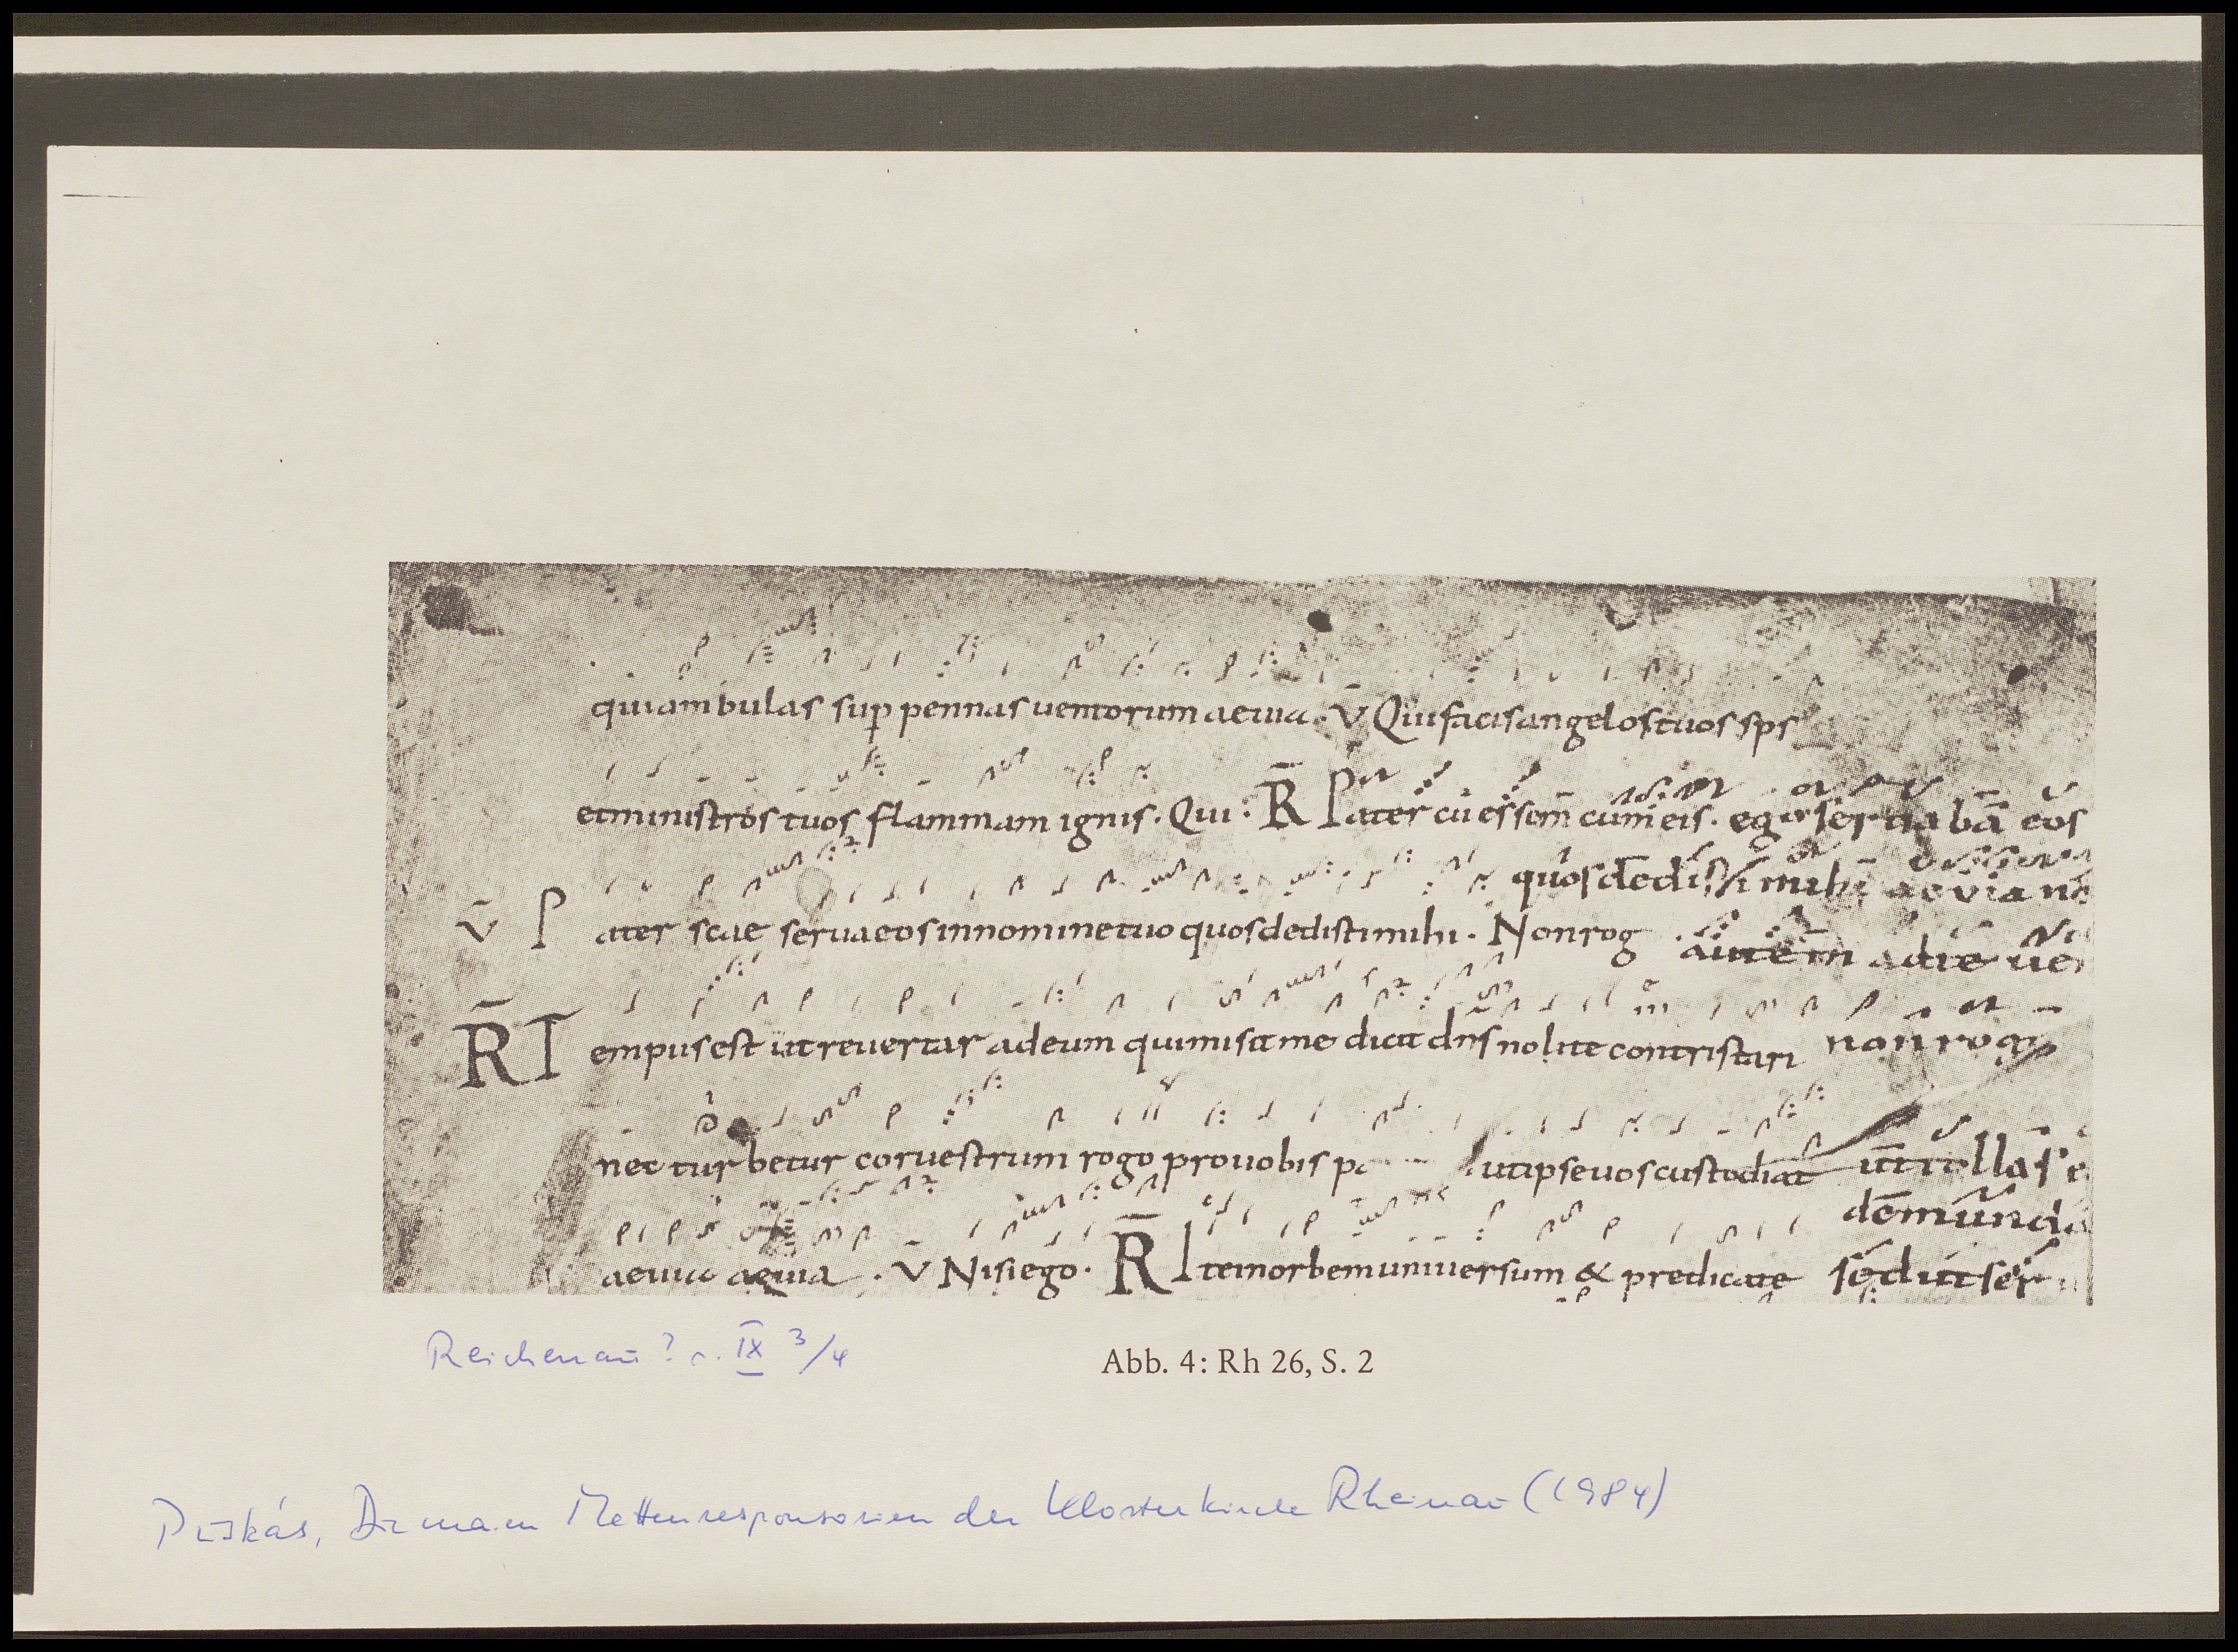 quiambulas sup pennas uentorum aeuia. V̄ Quifacisangelostuos sps
etministros tuos flammam ignis. Qui: R̄ Pater cū essem cum eis. ego seruabā eos
quos dedisti mihi aeuia
V̄ Pater scae seruaeosinnominetuo quosdedistimihi. Nonrog
autem
R̄ Tempusest ut reuertar adeum quimisit me dicit dn̄s nolite contristari non rog
nec turbetur coruestrum rogo prouobis utipseuoscustodiat
de mund
aeuia aeuia. V̄ Nisiego. R̄ Iteinorbemuniuersum & predicate sed ut ser
Reichenau? s. IX 3/4
Abb. 4: Rh 26, S. 2
Puskás, Die ma.en Mettenresponsorien der Klosterkirche Rheinau (1984)